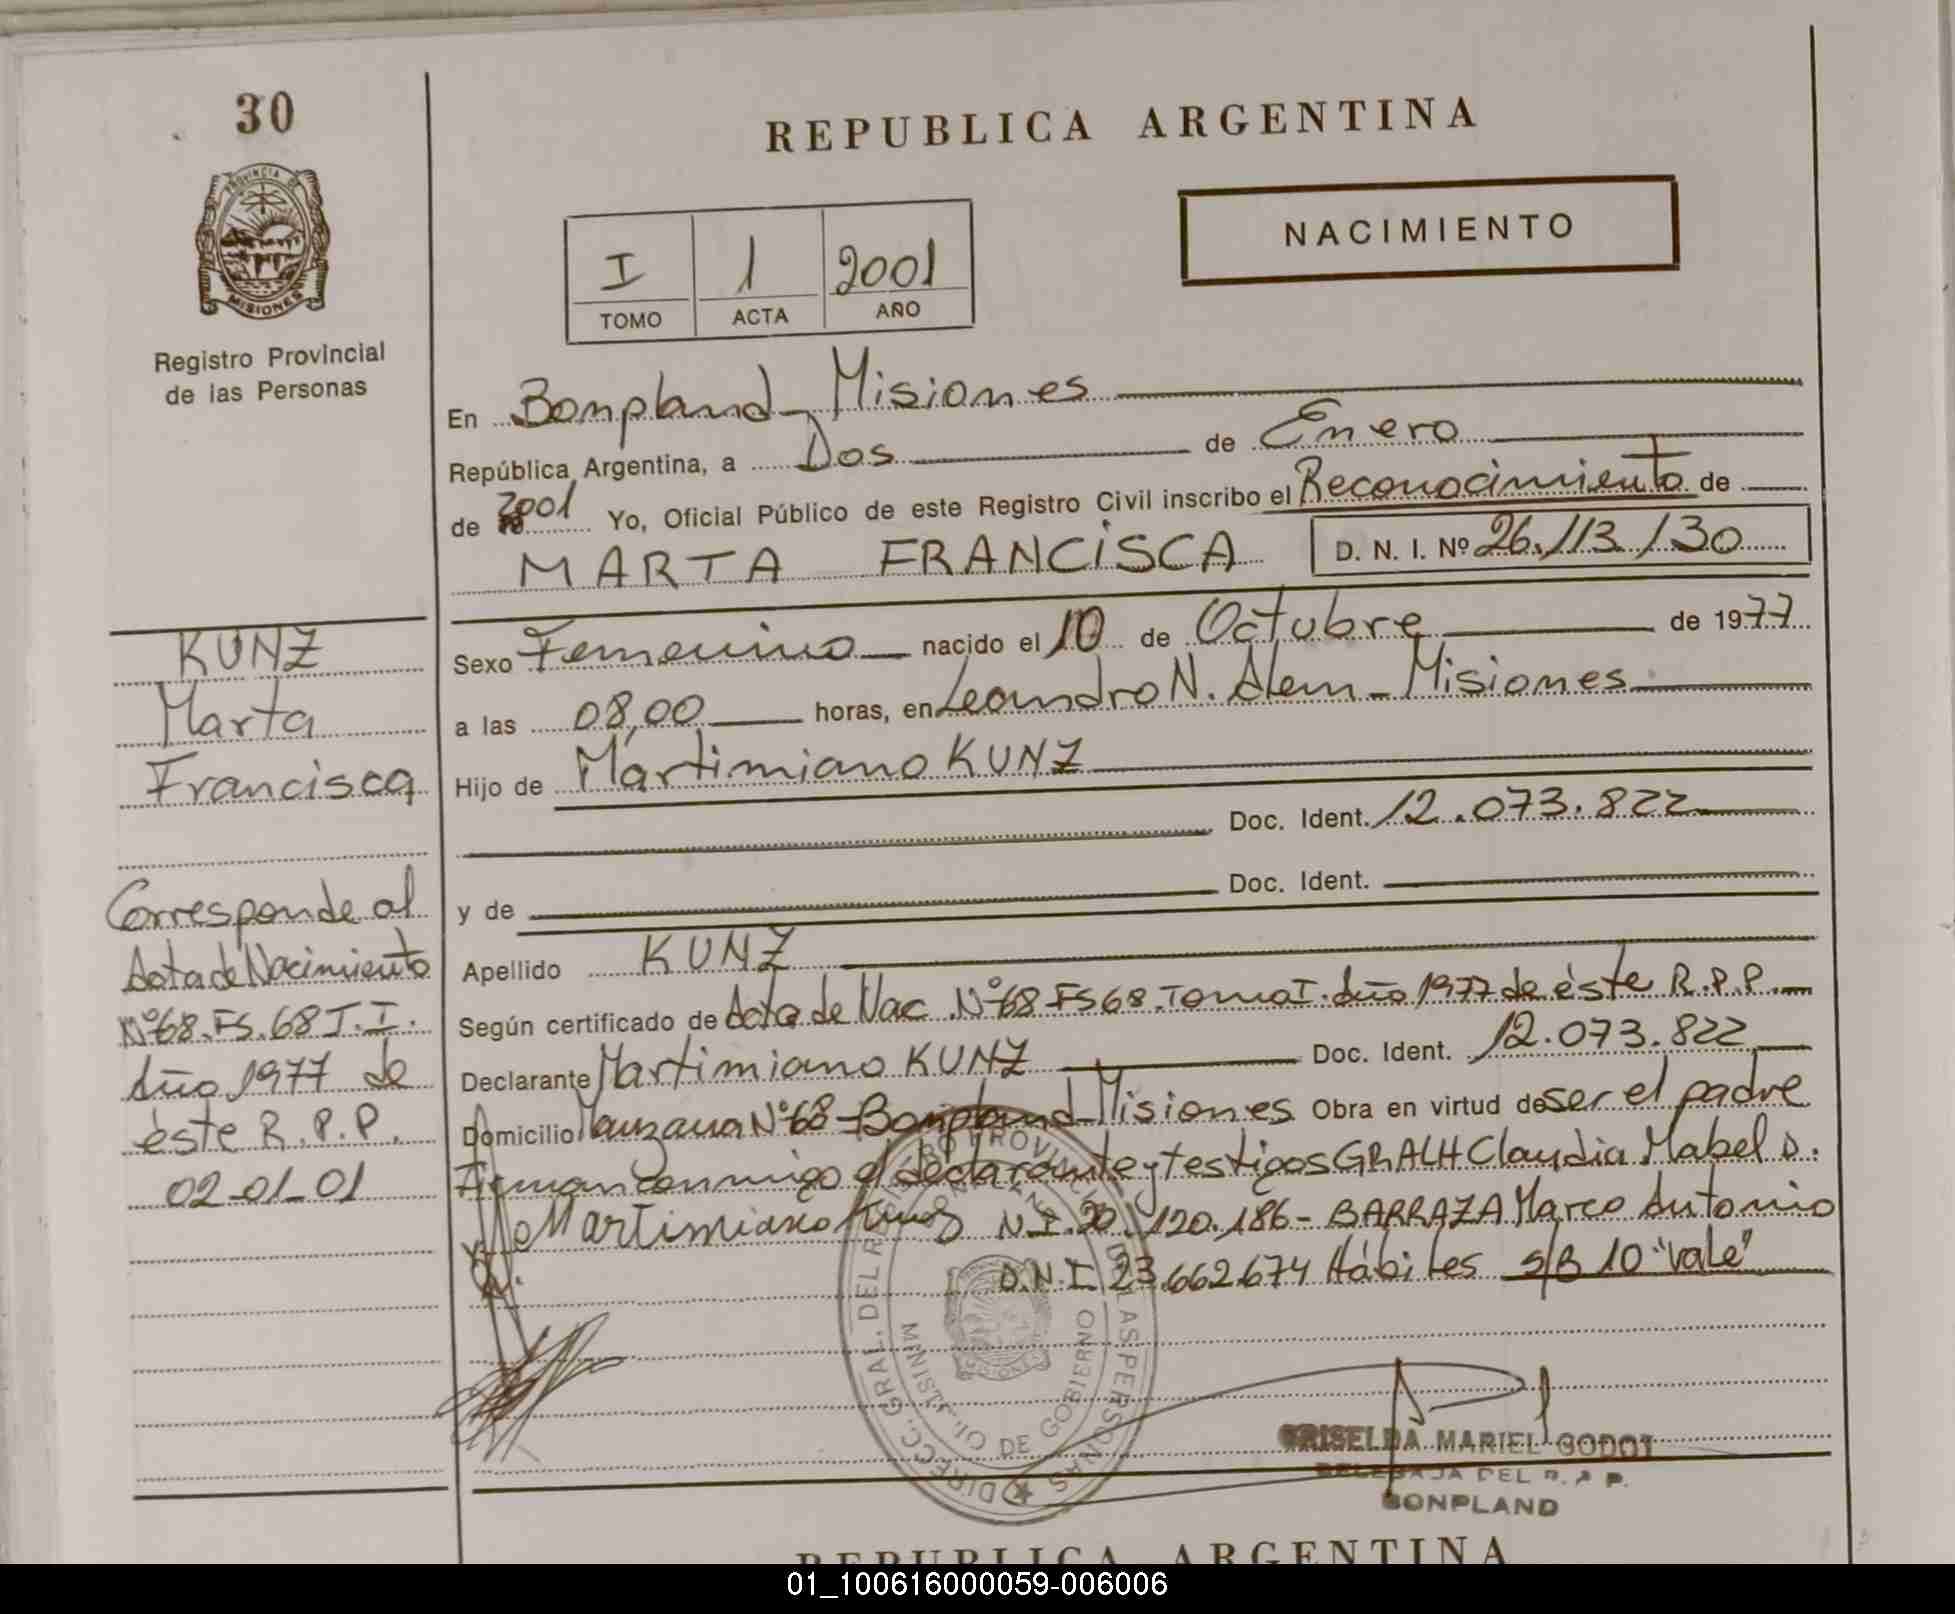 30
REPUBLICA ARGENTINA
PROVINCIA DE
MISIONES
NACIMIENTO
I 1 2001
TOMO ACTA AÑO
Registro Provincial
de las Personas
En Bonpland - Misiones
República Argentina, a Dos de Enero
de 2001 Yo, Oficial Público de este Registro Civil inscribo el Reconocimiento de
MARTA FRANCISCA D. N. I. Nº 26.113.130
Sexo Femenino nacido el 10 de Octubre de 1977
a las 08,00 horas, en Leandro N. Alem - Misiones
Hijo de Martimiano KUNZ
Doc. Ident. 12.073.822
y de Doc. Ident.
Apellido KUNZ
Según certificado de Acta de Nac. Nº 68 FS 68. Tomo I. Año 1977 de éste R.P.P.
Declarante Martimiano KUNZ Doc. Ident. 12.073.822
Domicilio Manzana Nº 68 - Bonpland - Misiones Obra en virtud de ser el padre
Firman conmigo el declarante y testigos GRALH Claudia Mabel D.
Martimiano Kunz N.I. 20.120.186 - BARRAZA Marco Antonio
D.N.I. 23.662.674 Hábiles s/B 10 "Vale"
KUNZ
Marta
Francisca
Corresponde al
Acta de Nacimiento
Nº 68. FS. 68 T. I.
Año 1977 de
éste R.P.P.
02-01-01
DIRECC. GRAL. DEL REGISTRO PROVINCIAL DE LAS PERSONAS
MINIST. DE GOBIERNO
BONPLAND
GRISELDA MARIEL GODOY
DELEGADA DEL R. P. P.
BONPLAND
REPUBLICA ARGENTINA
01_100616000059-006006